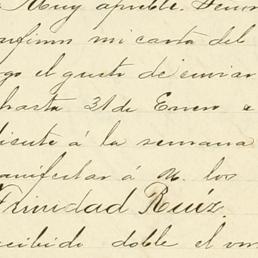 Muy apreble. Señor
onfirmo mi carta del
go el gusto de enviar
hasta 31 de Enero
á la semana
anifestar á U. los
Trinidad Ruíz.
ecibido doble el